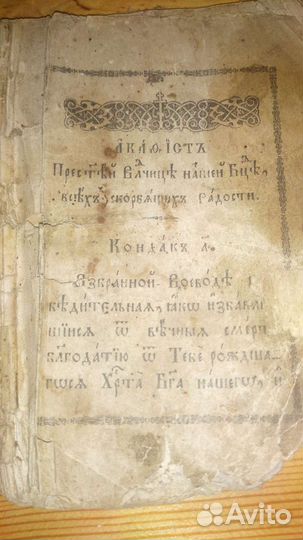 Акаѳістъ
Прест҃ѣй Влⷣчицѣ нашей Бцⷣѣ,
всѣхъ скорбящихъ Радости.
Кондакъ а҃.
Взбранной Воеводѣ
бѣдительная, ꙗкѡ избавль
шїися ѿ вѣчныя смерт
благодатїю ѿ Тебє рождша
гѡся Хрⷭ҇та̀ Бг҃а нашегѡ, й
Avito